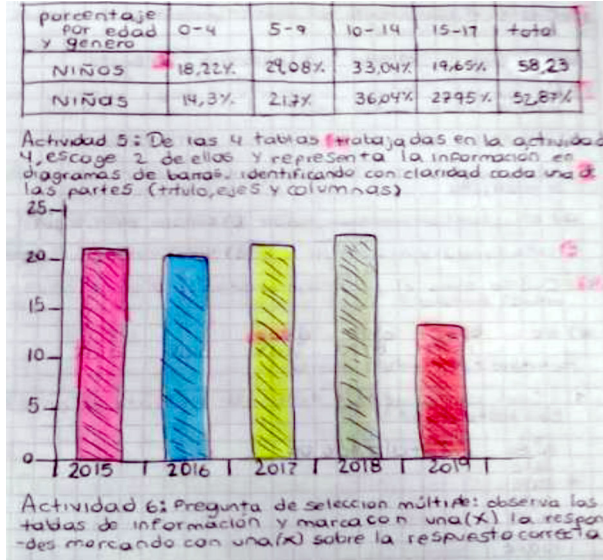 porcentaje por edad y genero | 0-4 | 5-9 | 10-14 | 15-17 | total
NIÑOS | 18,22% | 29,08% | 33,04% | 19,65% | 58,23
NIÑAS | 14,3% | 21.7% | 36,04% | 2795% | 52,87%
Actividad 5: De las 4 tablas trabajadas en la actividad
4, escoge 2 de ellas y representa la información en
diagramas de barras. identificando con claridad cada una de
las partes (titulo, ejes y columnas)
25
20
15
10
5
0
2015 2016 2017 2018 2019
Actividad 6: Pregunta de seleccion múltiple: observa las
tablas de información y marca con una(x) la respon
-des marcando con una(x) sobre la respuesta correcta